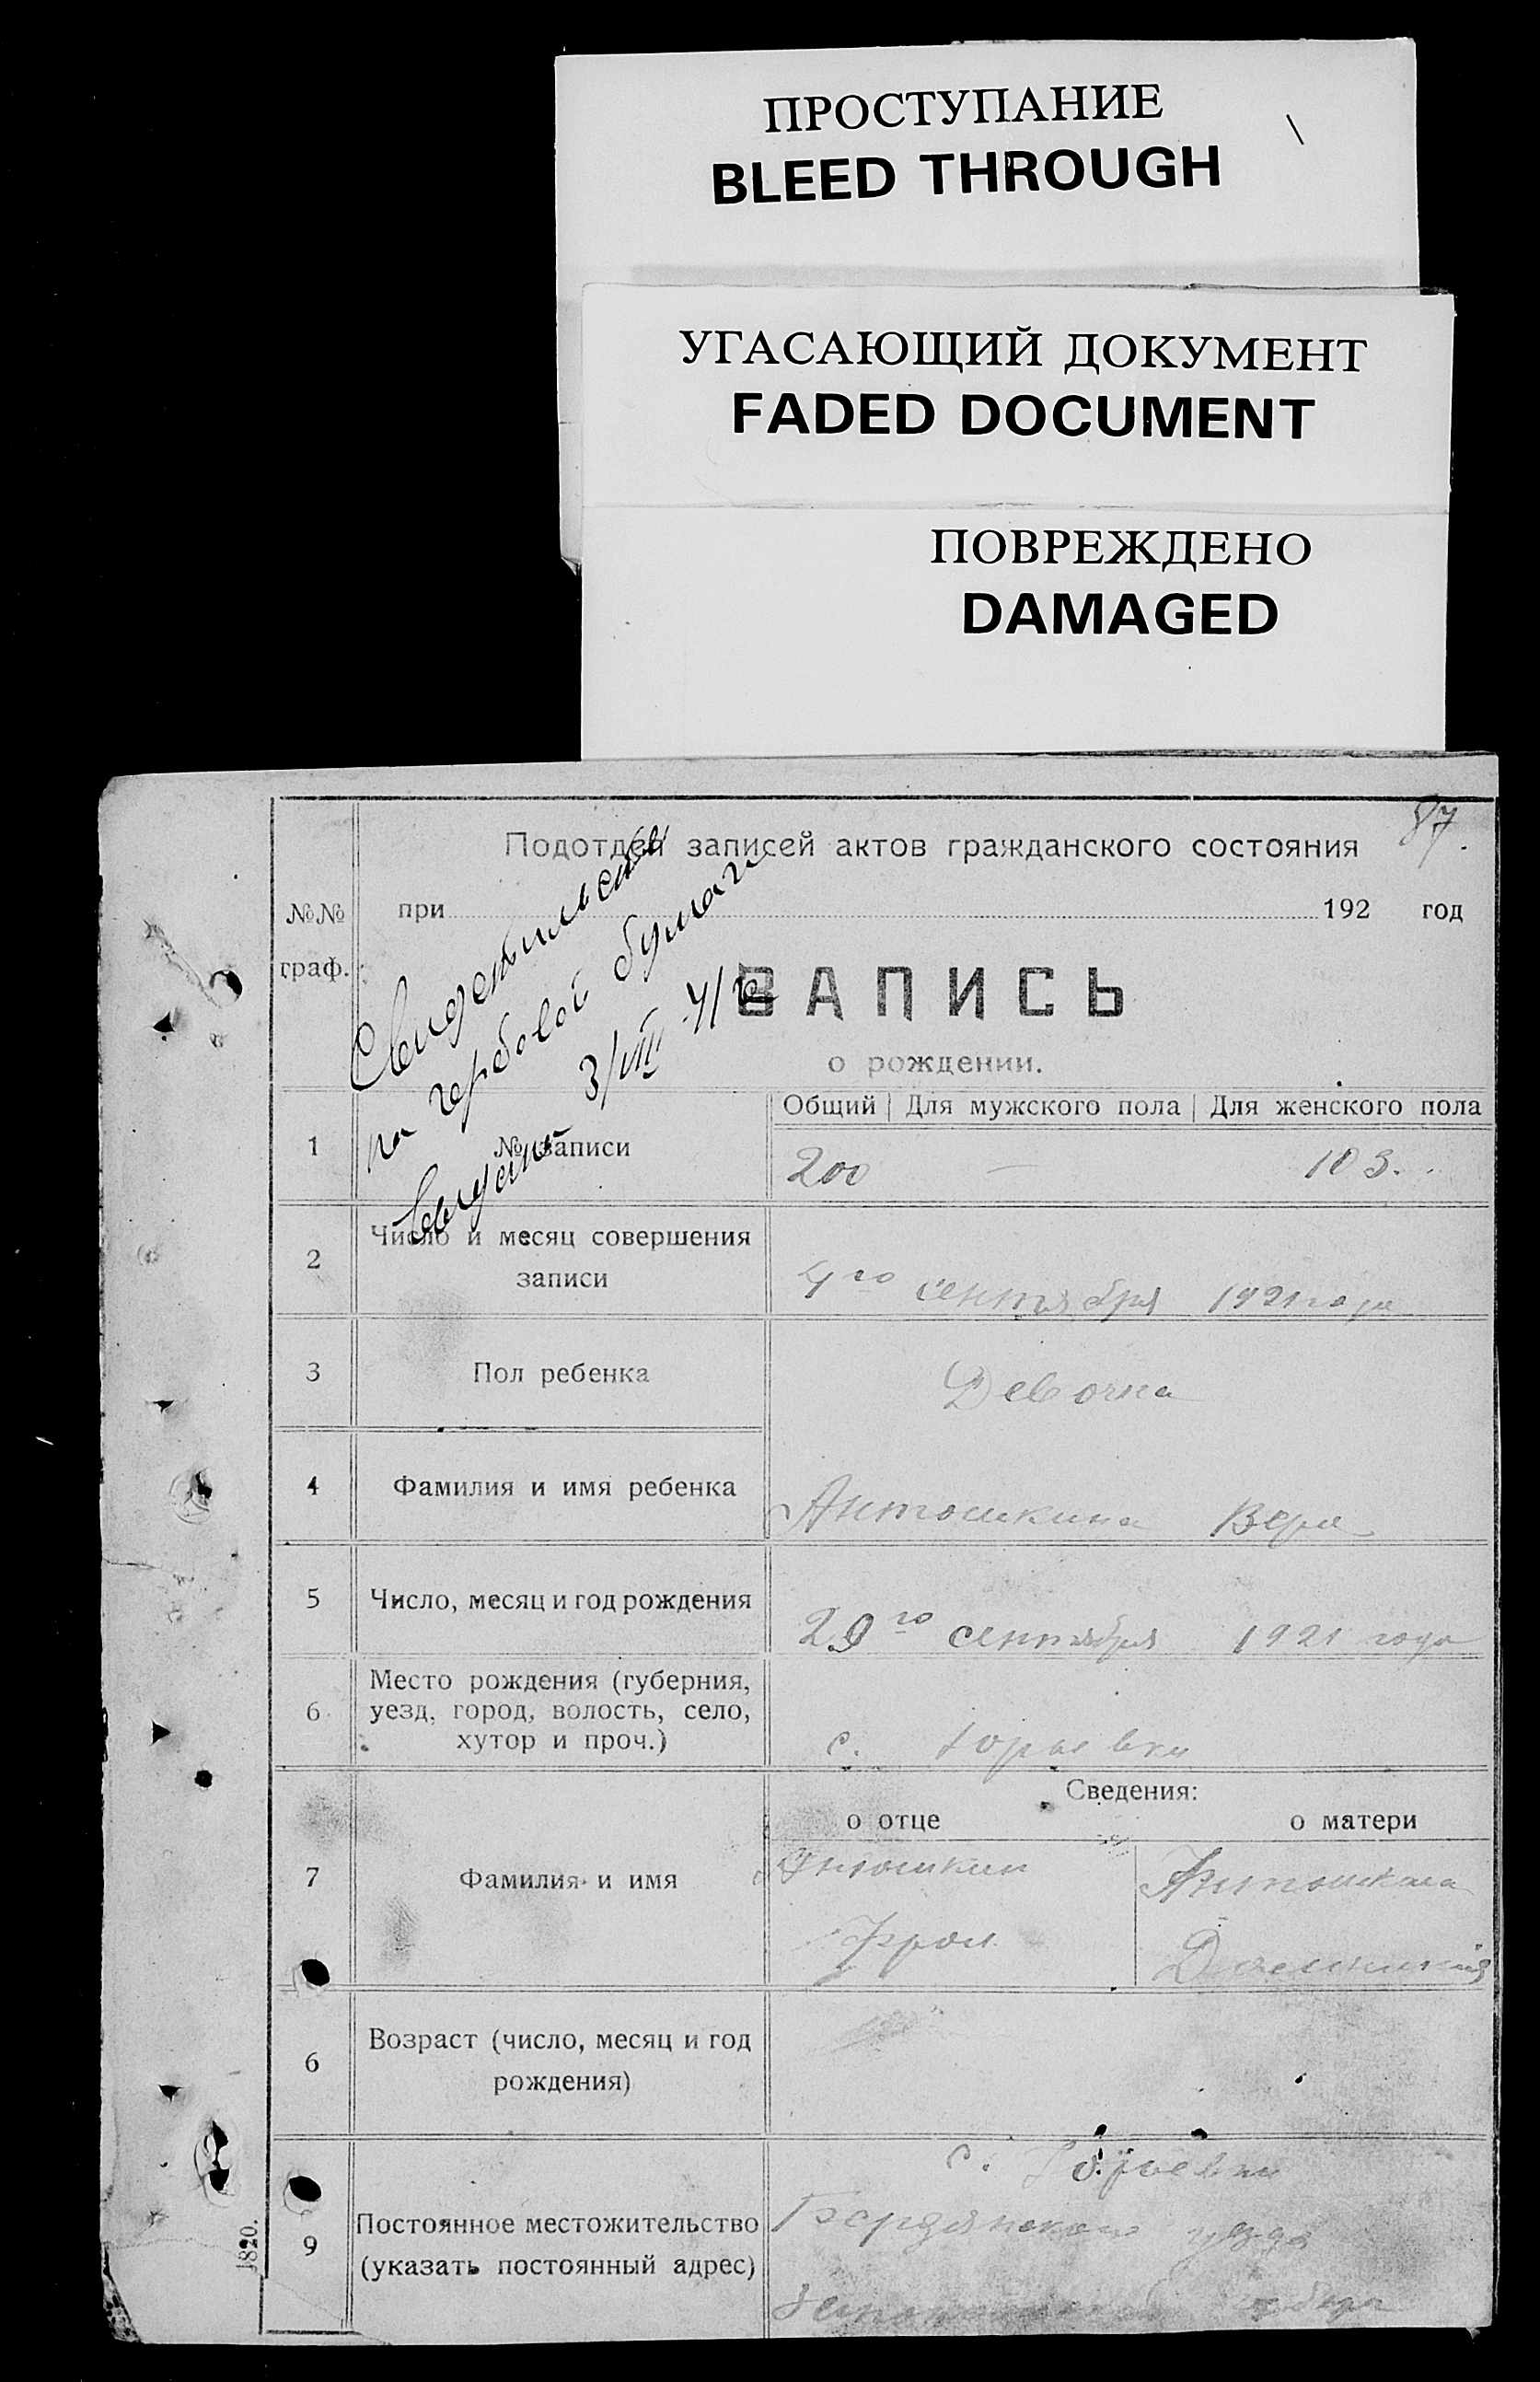 ПРОСТУПАНИЕ
BLEED THROUGH
УГАСАЮЩИЙ ДОКУМЕНТ
FADED DOCUMENT
ПОВРЕЖДЕНО
DAMAGED
87.
Подотдел записей актов гражданского состояния
при 192 год
№№ граф.
ЗАПИСЬ
о рождении.
на гербовой бумаге
3/VIII-41г
Общий Для мужского пола Для женского пола
1 № записи 200 — 103.
2 Число и месяц совершения
записи
сентября 1921 года
3 Пол ребенка Девочка
4 Фамилия и имя ребенка Антошкина Вера
5 Число, месяц и год рождения 29го сентября 1921 года
6 Место рождения (губерния,
уезд, город, волость, село,
хутор и проч.)
с.
Сведения:
о отце о матери
7 Фамилия и имя Антошкин Антошкина
Фрол
6 Возраст (число, месяц и год
рождения)
с.
9 Постоянное местожительство Бердянского уезда
(указать постоянный адрес)
1820.